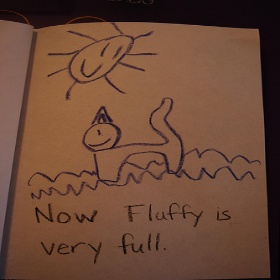 Now Fluffy is
very full.